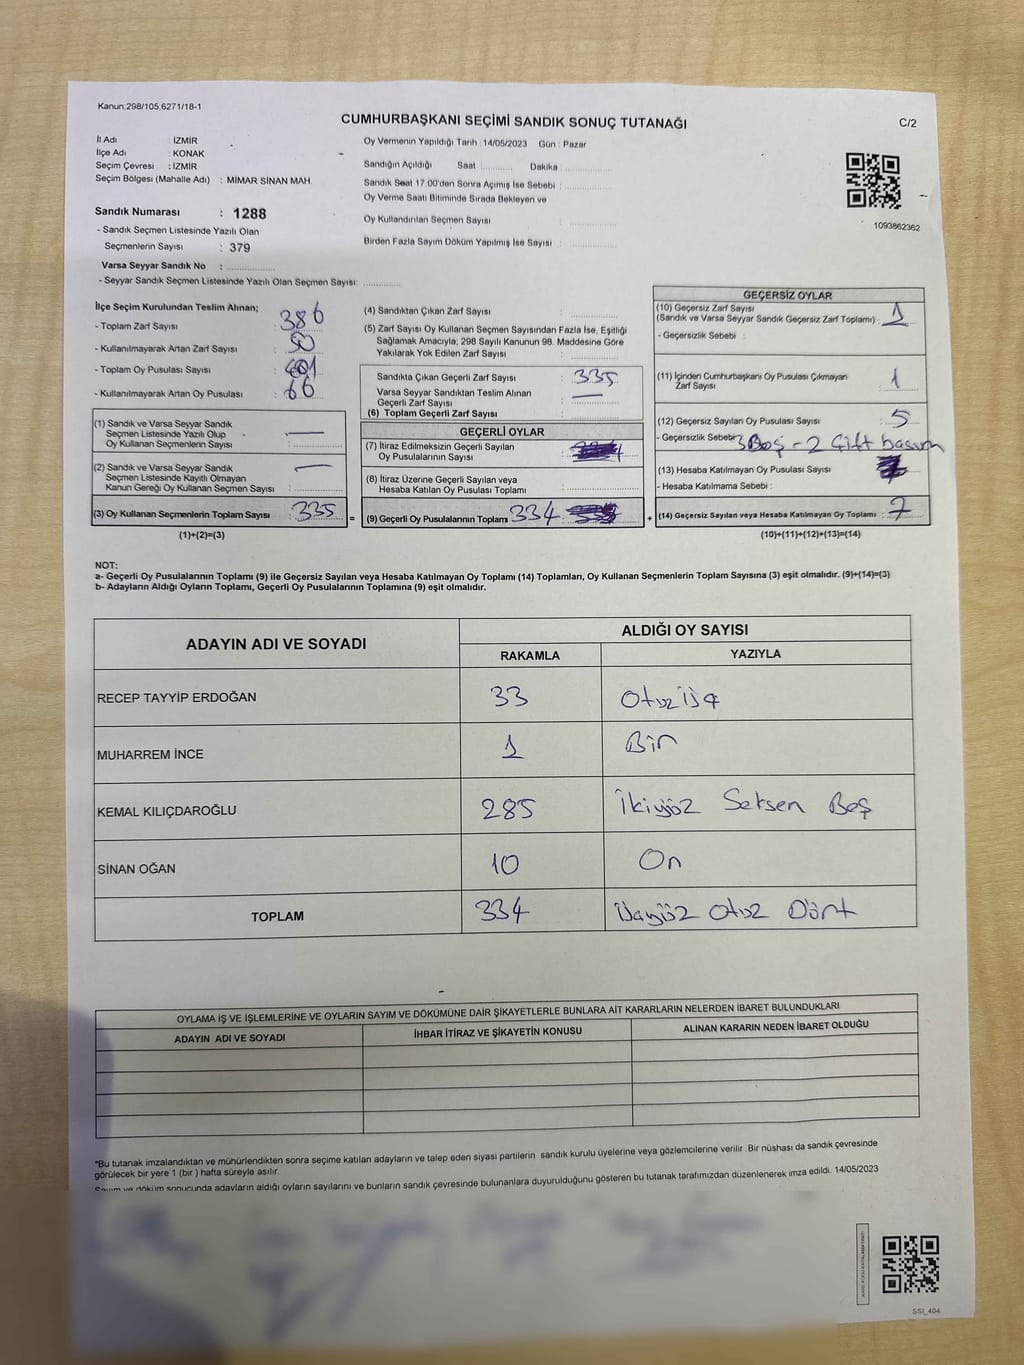 Kanun;298/105,6271/18-1
CUMHURBAŞKANI SEÇİMİ SANDIK SONUÇ TUTANAĞI
C/2
İl Adı : İZMİR
İlçe Adı : KONAK
Seçim Çevresi : İZMİR
Seçim Bölgesi (Mahalle Adı) : MİMAR SİNAN MAH.
Sandık Numarası : 1288
- Sandık Seçmen Listesinde Yazılı Olan
Seçmenlerin Sayısı : 379
Varsa Seyyar Sandık No :
- Seyyar Sandık Seçmen Listesinde Yazılı Olan Seçmen Sayısı:
Oy Vermenin Yapıldığı Tarih : 14/05/2023 Gün : Pazar
Sandığın Açıldığı Saat Dakika
Sandık Saat 17.00'den Sonra Açımış İse Sebebi :
Oy Verme Saati Bitiminde Sırada Bekleyen ve
Oy Kullandırılan Seçmen Sayısı :
Birden Fazla Sayım Döküm Yapılmış İse Sayısı :
1093862362
İlçe Seçim Kurulundan Teslim Alınan;
- Toplam Zarf Sayısı : 386
- Kullanılmayarak Artan Zarf Sayısı : 50
- Toplam Oy Pusulası Sayısı : 401
- Kullanılmayarak Artan Oy Pusulası : 66
(1) Sandık ve Varsa Seyyar Sandık
Seçmen Listesinde Yazılı Olup
Oy Kullanan Seçmenlerin Sayısı : —
(2) Sandık ve Varsa Seyyar Sandık
Seçmen Listesinde Kayıtlı Olmayan
Kanun Gereği Oy Kullanan Seçmen Sayısı : —
(3) Oy Kullanan Seçmenlerin Toplam Sayısı : 335
(1)+(2)=(3)
(4) Sandıktan Çıkan Zarf Sayısı :
(5) Zarf Sayısı Oy Kullanan Seçmen Sayısından Fazla İse, Eşitliği
Sağlamak Amacıyla; 298 Sayılı Kanunun 98. Maddesine Göre
Yakılarak Yok Edilen Zarf Sayısı :
Sandıkta Çıkan Geçerli Zarf Sayısı : 335
Varsa Seyyar Sandıktan Teslim Alınan
Geçerli Zarf Sayısı : —
(6) Toplam Geçerli Zarf Sayısı :
GEÇERLİ OYLAR
(7) İtiraz Edilmeksizin Geçerli Sayılan
Oy Pusulalarının Sayısı :
(8) İtiraz Üzerine Geçerli Sayılan veya
Hesaba Katılan Oy Pusulası Toplamı :
= (9) Geçerli Oy Pusulalarının Toplamı 334
GEÇERSİZ OYLAR
(10) Geçersiz Zarf Sayısı
(Sandık ve Varsa Seyyar Sandık Geçersiz Zarf Toplamı) : 1
- Geçersizlik Sebebi :
(11) İçinden Cumhurbaşkanı Oy Pusulası Çıkmayan
Zarf Sayısı : 1
(12) Geçersiz Sayılan Oy Pusulası Sayısı : 5
- Geçersizlik Sebebi 3 Boş - 2 Çift basım
(13) Hesaba Katılmayan Oy Pusulası Sayısı
- Hesaba Katılmama Sebebi :
+ (14) Geçersiz Sayılan veya Hesaba Katılmayan Oy Toplamı : 7
(10)+(11)+(12)+(13)=(14)
NOT:
a- Geçerli Oy Pusulalarının Toplamı (9) ile Geçersiz Sayılan veya Hesaba Katılmayan Oy Toplamı (14) Toplamları, Oy Kullanan Seçmenlerin Toplam Sayısına (3) eşit olmalıdır. (9)+(14)=(3)
b- Adayların Aldığı Oyların Toplamı, Geçerli Oy Pusulalarının Toplamına (9) eşit olmalıdır.
ADAYIN ADI VE SOYADI
ALDIĞI OY SAYISI
RAKAMLA YAZIYLA
RECEP TAYYİP ERDOĞAN 33 Otuz üç
MUHARREM İNCE 1 Bir
KEMAL KILIÇDAROĞLU 285 İkiyüz Seksen Beş
SİNAN OĞAN 10 On
TOPLAM 334 Üçyüz Otuz Dört
OYLAMA İŞ VE İŞLEMLERİNE VE OYLARIN SAYIM VE DÖKÜMÜNE DAİR ŞİKAYETLERLE BUNLARA AİT KARARLARIN NELERDEN İBARET BULUNDUKLARI
ADAYIN ADI VE SOYADI İHBAR İTİRAZ VE ŞİKAYETİN KONUSU ALINAN KARARIN NEDEN İBARET OLDUĞU
*Bu tutanak imzalandıktan ve mühürlendikten sonra seçime katılan adayların ve talep eden siyasi partilerin sandık kurulu üyelerine veya gözlemcilerine verilir. Bir nüshası da sandık çevresinde
görülecek bir yere 1 (bir ) hafta süreyle asılır.
Sayım ve döküm sonucunda adayların aldığı oyların sayılarını ve bunların sandık çevresinde bulunanlara duyurulduğunu gösteren bu tutanak tarafımızdan düzenlenerek imza edildi. 14/05/2023
SSI_404